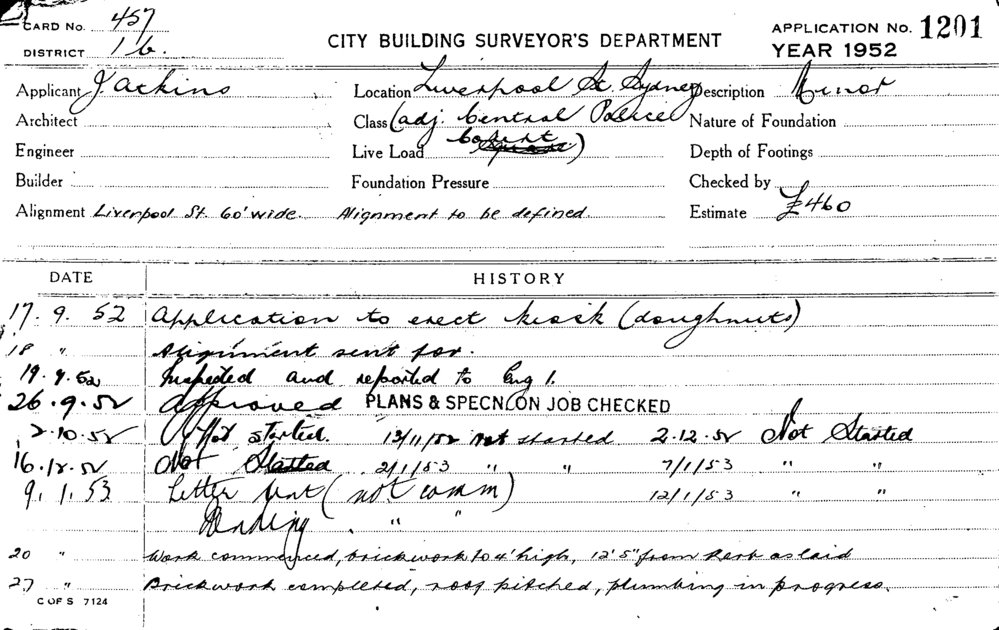 CARD No. 457
DISTRICT 1b.
CITY BUILDING SURVEYOR'S DEPARTMENT
APPLICATION No. 1201
YEAR 1952
Applicant J Ackins Location Liverpool St. Sydney Description Minor
Architect Class (adj. Central Police Nature of Foundation
Engineer Live Load Court) Depth of Footings
Builder Foundation Pressure Checked by
Alignment Liverpool St. 60' wide. Alignment to be defined. Estimate £460
DATE HISTORY
17. 9. 52 Application to erect kiosk (doughnuts)
18 " Alignment sent for.
19. 9. 52 Inspected and reported to Eng 1.
26. 9. 52 Approved PLANS & SPECN. ON JOB CHECKED
2. 10. 52 Not started. 13/11/52 not started 2. 12. 52 Not Started
16. 12. 52 Not Started 2/1/53 " " 7/1/53 " "
9. 1. 53 Letter sent (not comm) 12/1/53 " "
Pending . " "
20 " Work commenced, brickwork to 4' high, 12' 5" from kerb as laid
27 " Brickwork completed, roof pitched, plumbing in progress.
C OF S 7124